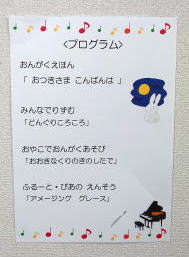 <プログラム>
おんがくえほん
「 おつきさま こんばんは 」
みんなでりずむ
「どんぐりころころ」
おやこでおんがくあそび
「おおきなくりのきのしたで」
ふるーと・ぴあの えんそう
「アメージング グレース」